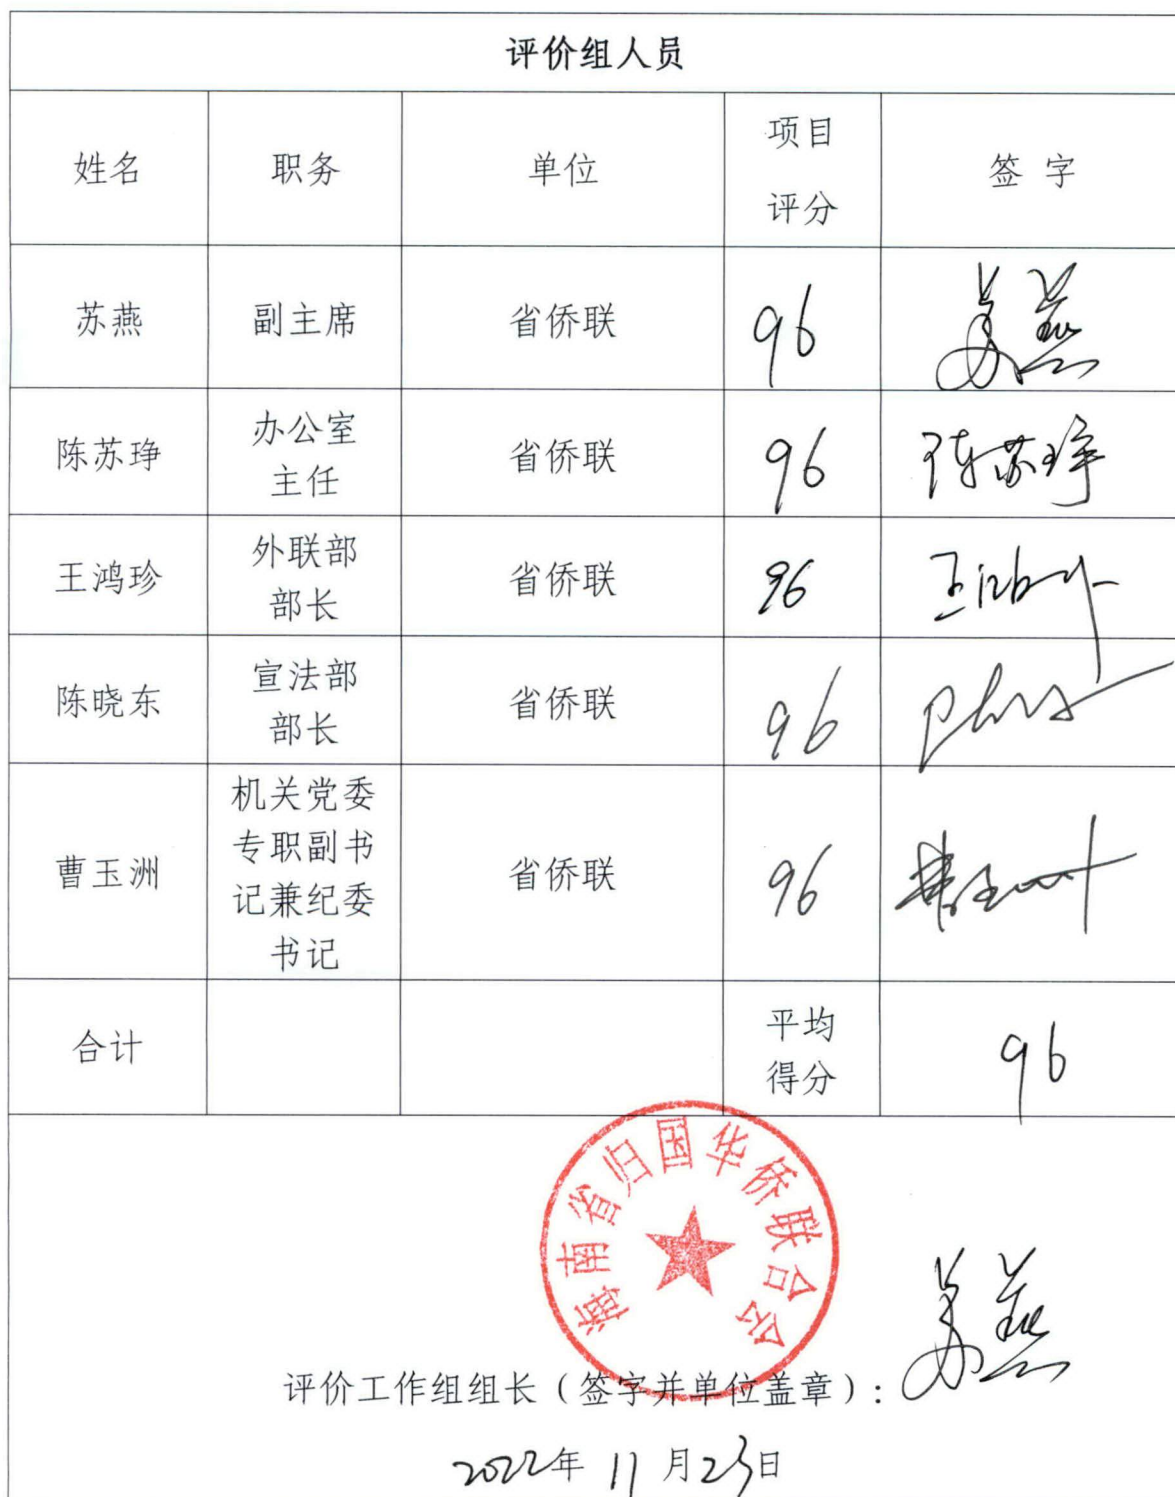 评价组人员
姓名 职务 单位 项目 评分 签 字
苏燕 副主席 省侨联 96 苏燕
陈苏琤 办公室 主任 省侨联 96 陈苏琤
王鸿珍 外联部 部长 省侨联 96
陈晓东 宣法部 部长 省侨联 96
曹玉洲 机关党委 专职副书 记兼纪委 书记 省侨联 96 曹玉洲
合计 平均 得分 96
海南省归国华侨联合会
评价工作组组长（签字并单位盖章）：苏燕
2022年 11 月23日